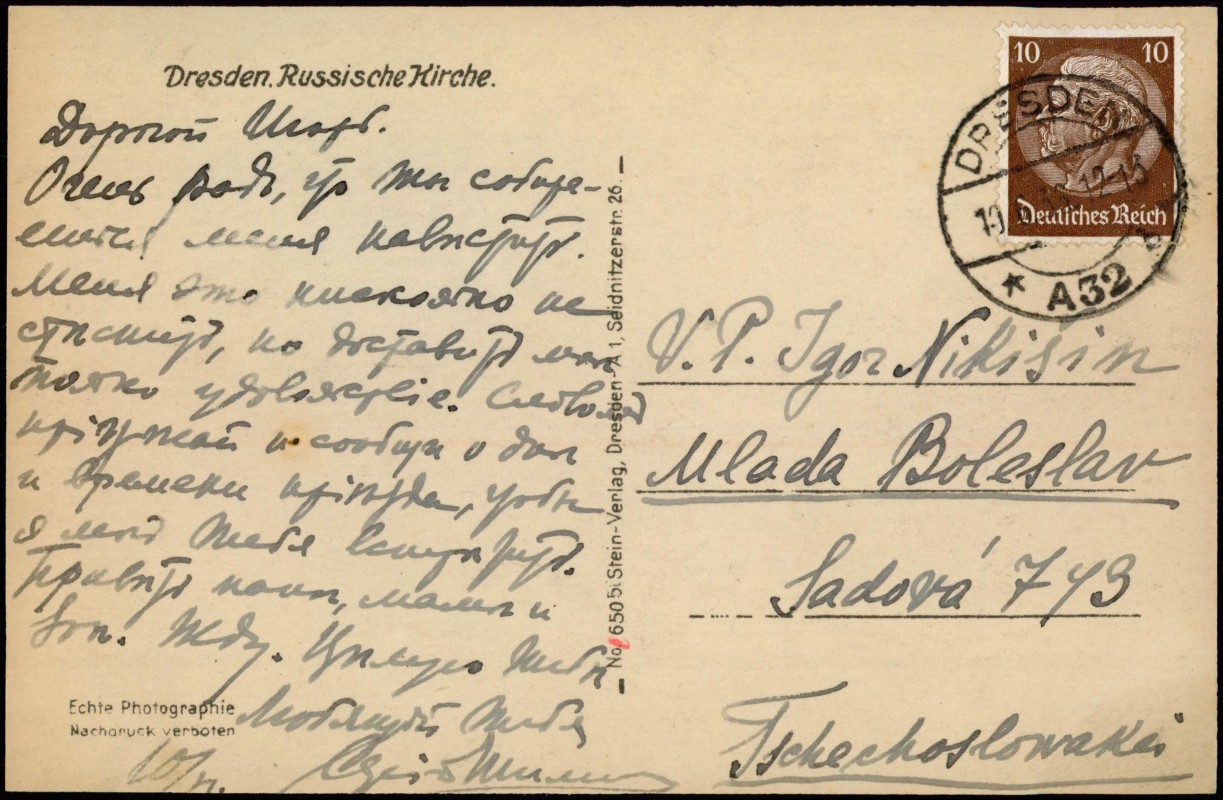 Dresden. Russische Kirche.
Дорогой Игорь.
Очень радъ, что ты собира-
ешься меня навѣстить.
Меня это нисколько не
стѣснитъ, но доставитъ мнѣ
только удовольствіе.
пріѣзжай и сообщи о дне
и времени пріѣзда, чтобы
я могъ тебя встрѣтить.
Привѣтъ папѣ, мамѣ и
Жду. Цѣлую тебя
Любящій тебя
Echte Photographie
Nachdruck verboten
No 650 Stein-Verlag, Dresden-A 1, Seidnitzerstr. 26.
10 10
Deutsches Reich
DRESDEN
12-13
* A32
V. P. Igor Nikišin
Mlada Boleslav
Sadová 793
Tschechoslowakei